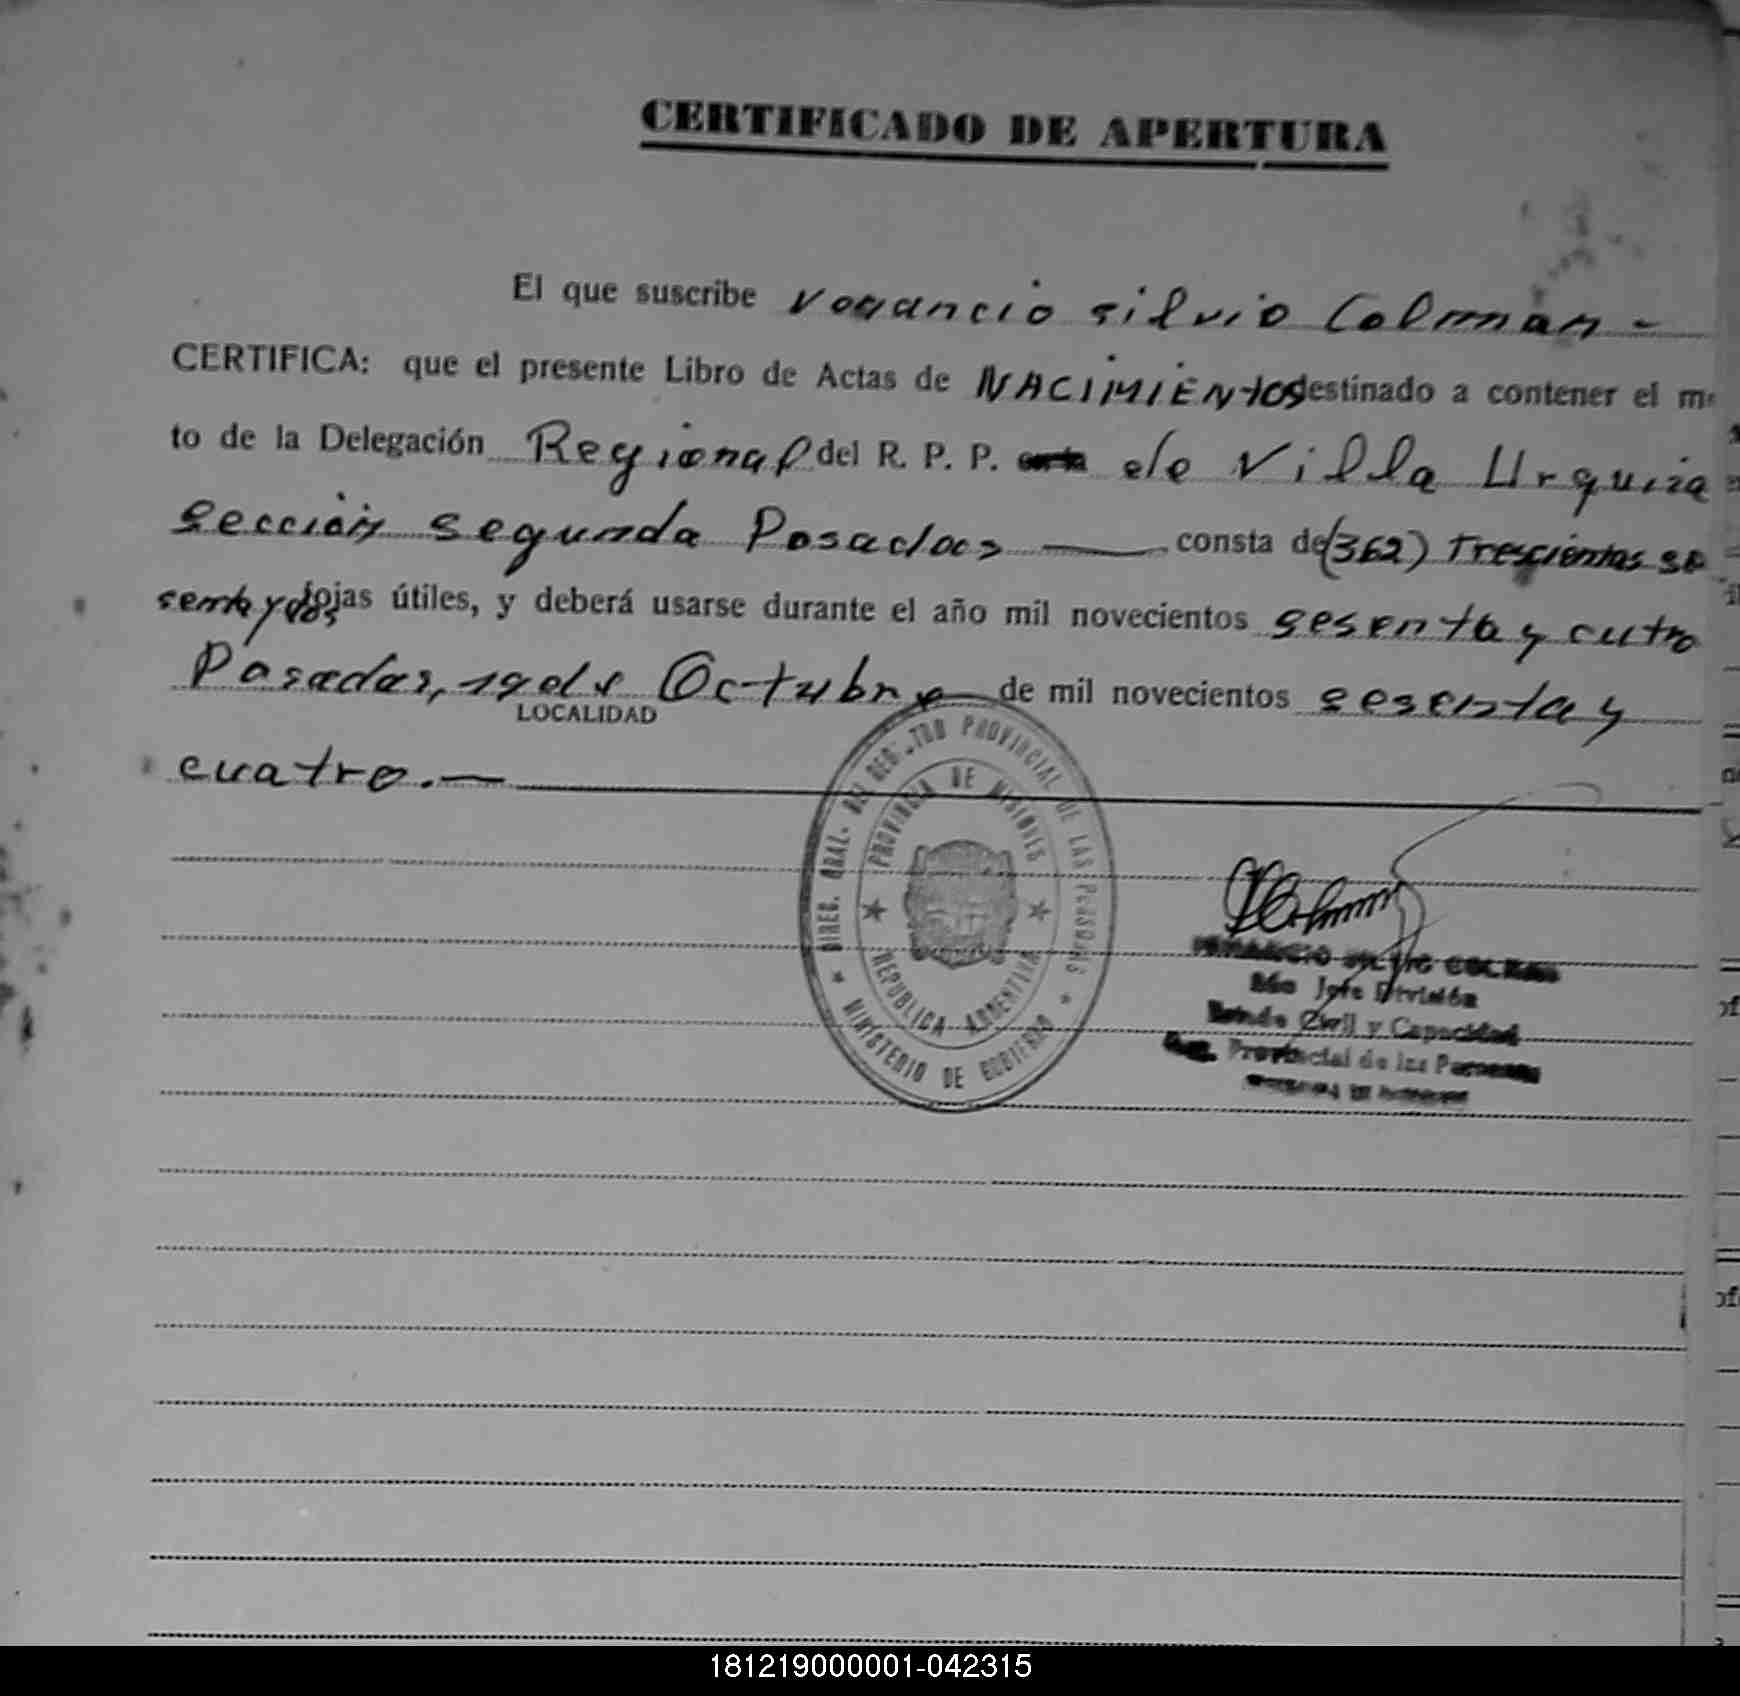 CERTIFICADO DE APERTURA
El que suscribe Venancio silvio Colman -
CERTIFICA: que el presente Libro de Actas de NACIMIENtos destinado a contener el
to de la Delegación Regional del R. P. P. de Villa Urquiza
sección segunda Posadas — consta de (362) Trescientos se
senta y dos fojas útiles, y deberá usarse durante el año mil novecientos sesenta y cutro
Posadas, 19 de Octubre de mil novecientos sesenta y
LOCALIDAD
cuatro.—
DIREC. GRAL. DEL REGISTRO PROVINCIAL DE LAS PERSONAS
MINISTERIO DE GOBIERNO
PROVINCIA DE MISIONES
REPUBLICA ARGENTINA
VENANCIO SILVIO COLMAN
Jefe División
Estado Civil y Capacidad
Provincial de las Personas
181219000001-042315